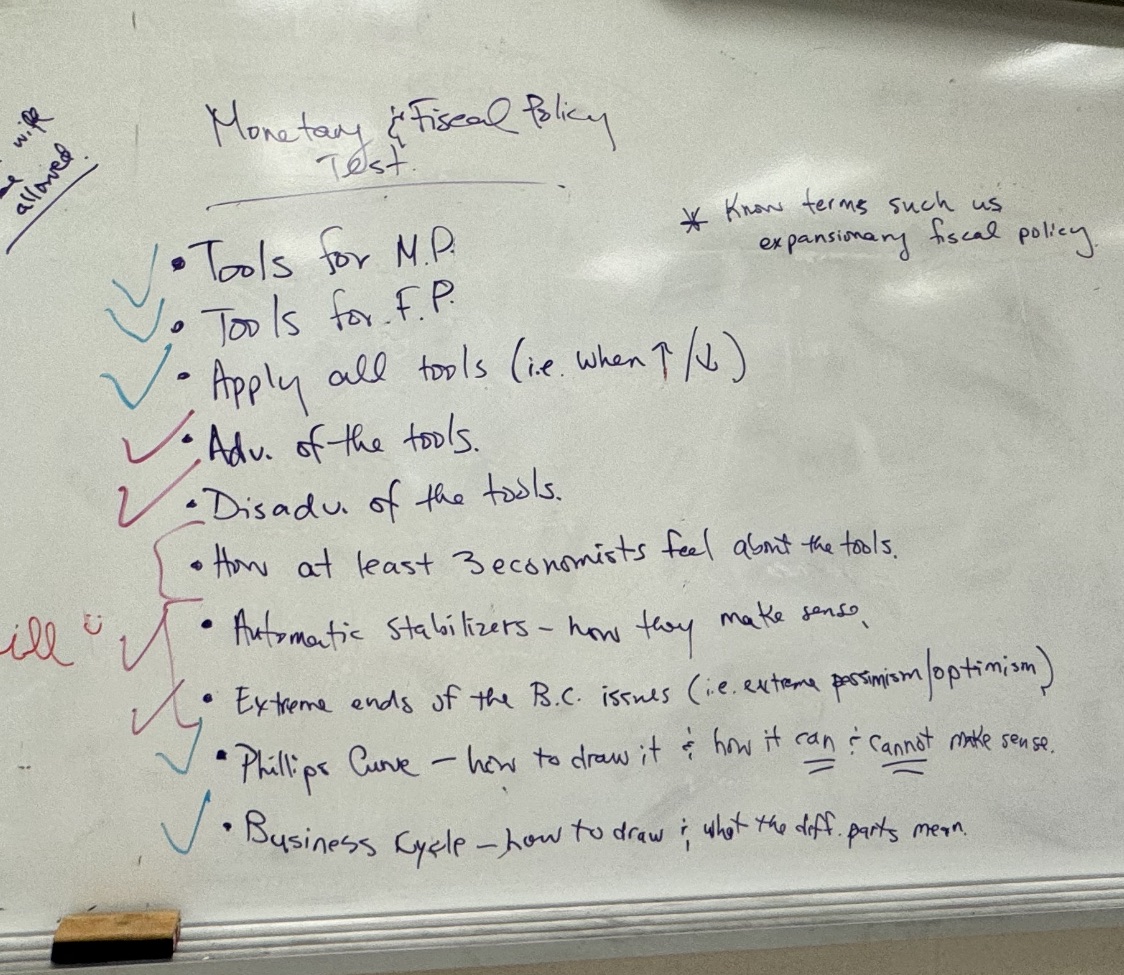 wife
allowed.
Monetary & Fiscal Policy
Test.
* Know terms such us
expansionary fiscal policy.
• Tools for M.P.
• Tools for F.P.
• Apply all tools (i.e. when ↑/↓)
• Adv. of the tools.
• Disadv. of the tools.
• How at least 3 economists feel about the tools.
• Automatic Stabilizers – how they make sense.
ill
• Extreme ends of the B.C. issues (i.e. extreme pessimism/optimism)
• Phillips Curve – how to draw it & how it can & cannot make sense.
• Business Cycle – how to draw & what the diff. parts mean.